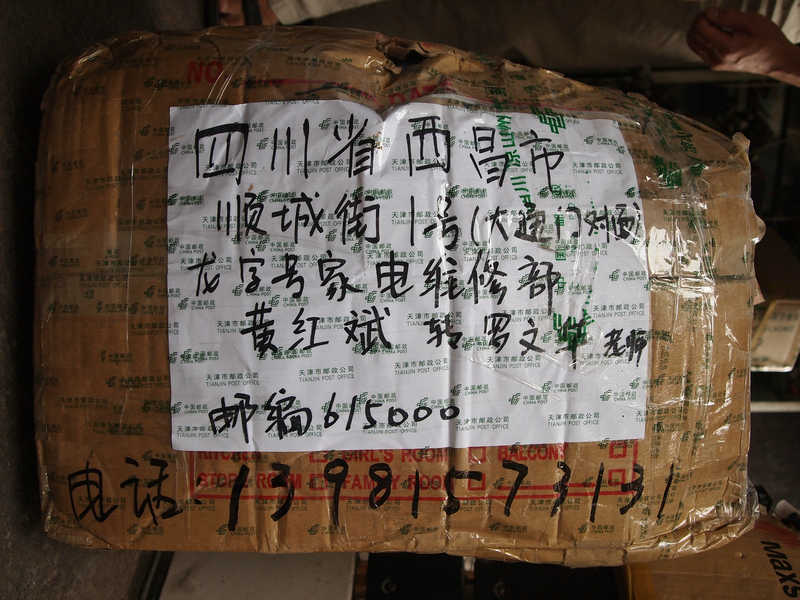 NO
四川省西昌市
顺城街1号(大通门对面)
龙字号家电维修部
黄红斌 转罗文华老师
邮编615000
KITCHEN GIRL'S ROOM BALCONY
STORE ROOM FAMILY ROOM
电话:13981573131
中国邮政
CHINA POST
天津市邮政公司
TIANJIN POST OFFICE
Maxs